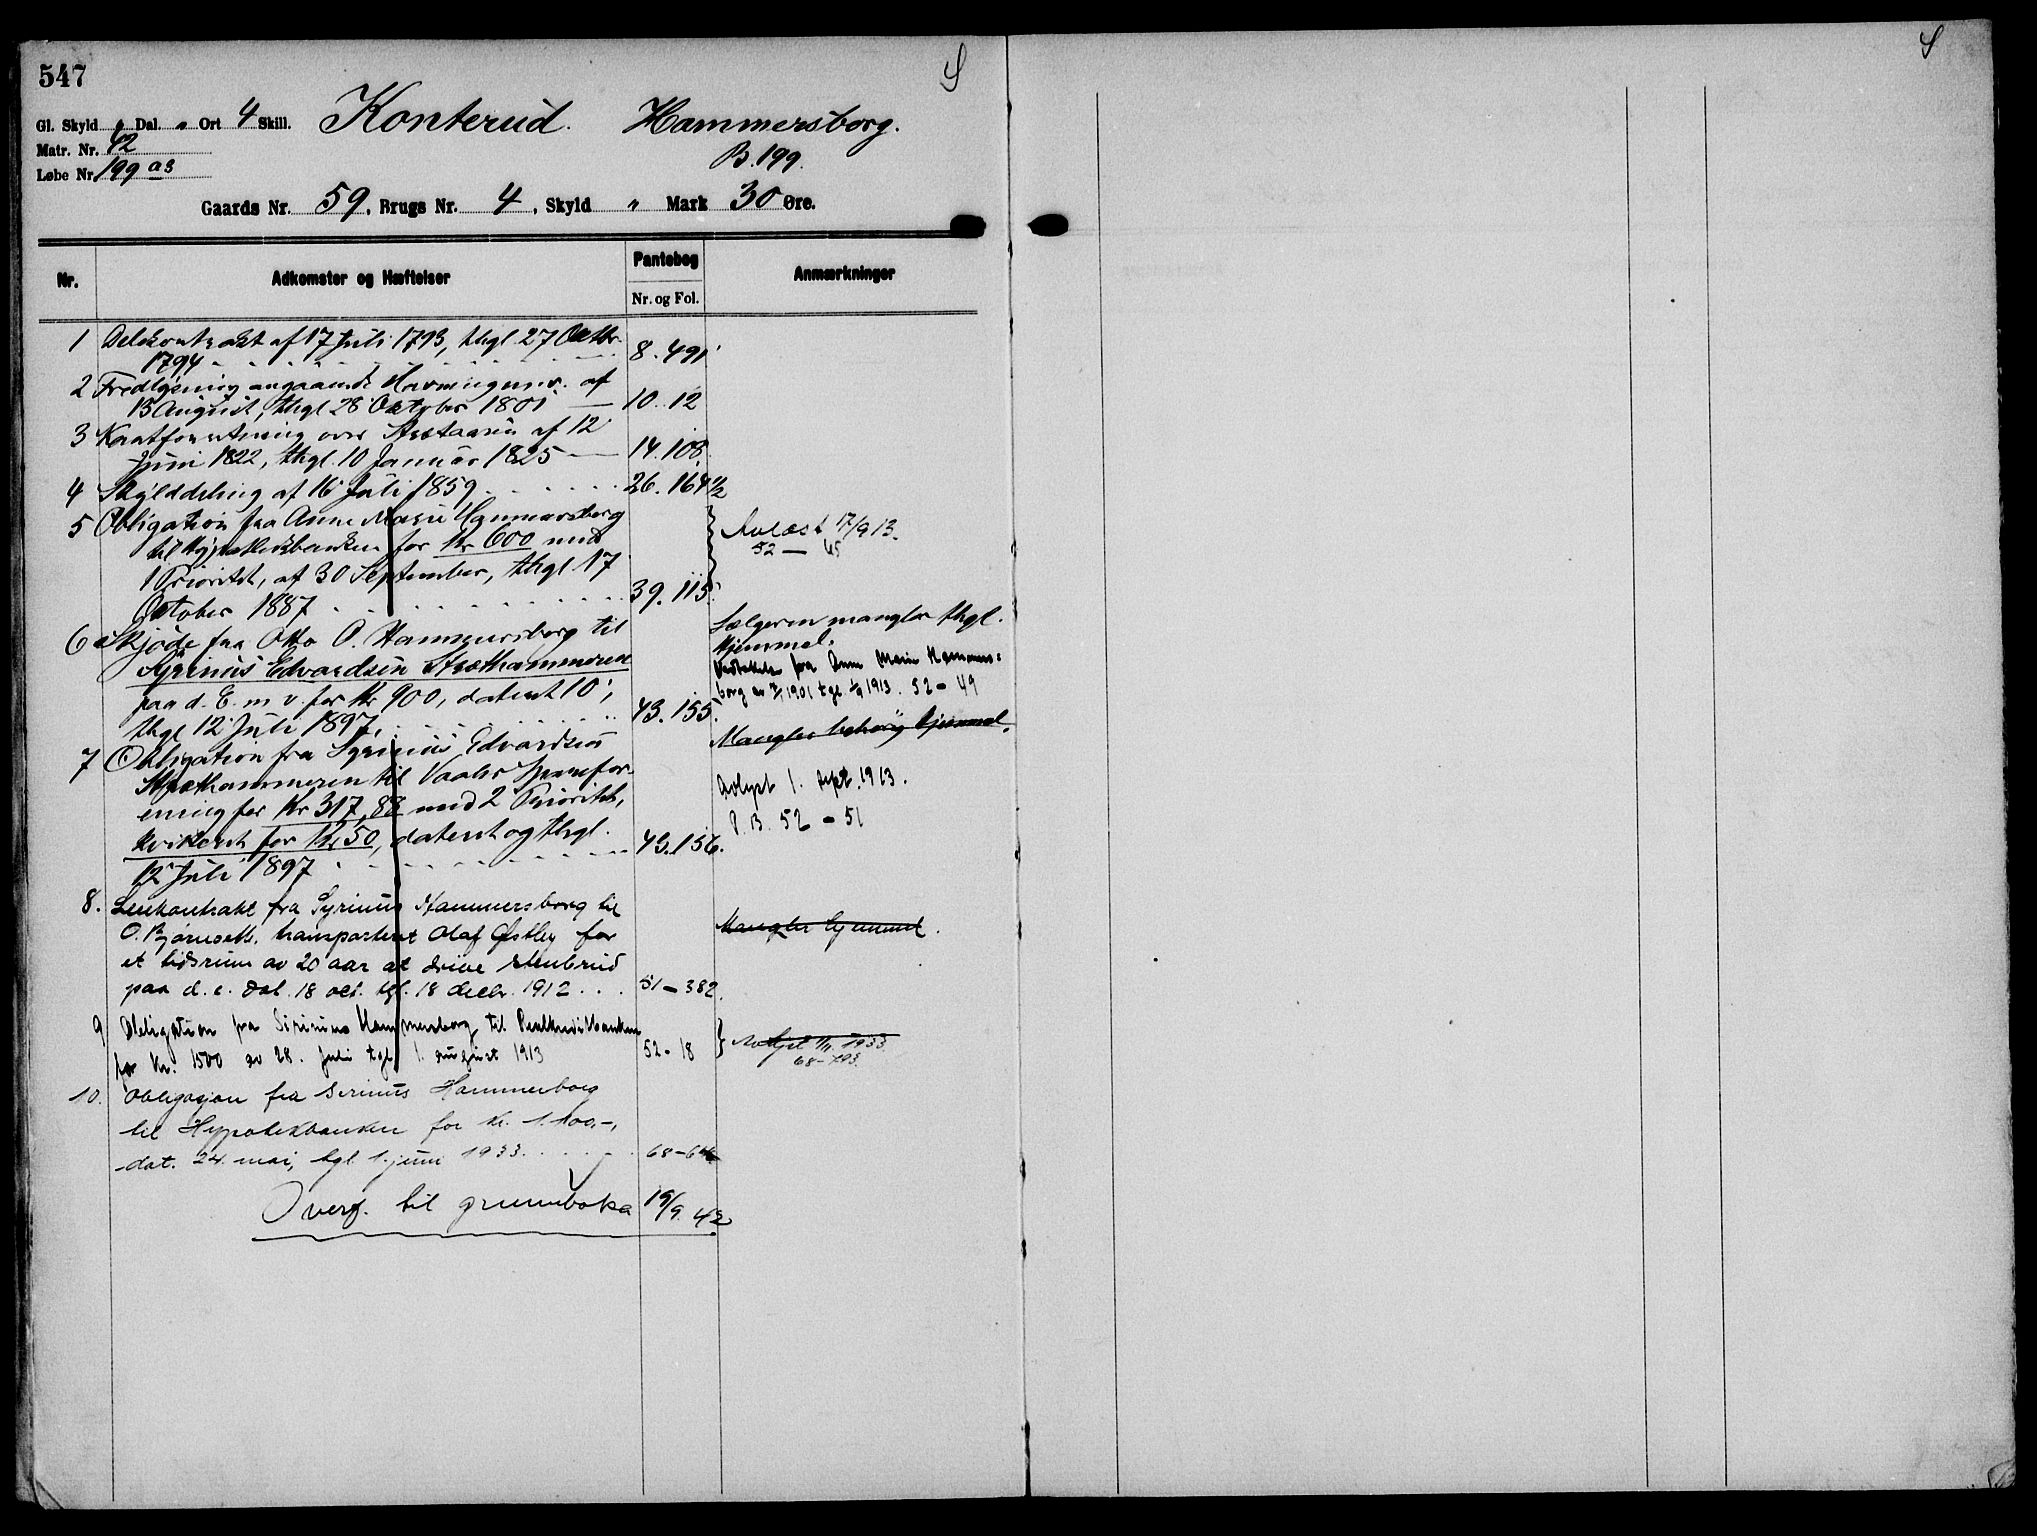 547
S
S
Gl. Skyld " Dal. " Ort 4 Skill. Konterud. Hammersborg.
Matr. Nr. 42
B. 199.
Løbe Nr. 199 a3
Gaards Nr. 59, Brugs Nr. 4, Skyld " Mark 30 Øre.
Nr. Adkomster og Hæftelser Pantebog Anmærkninger
Nr. og Fol.
1 Delekontrakt af 17 Juli 1793, thgl. 27 Octbr.
1794 8. 491
2 Fredlysning angaaende Havningen m. v. af
13 August, thgl 28 October 1801 10. 12
3 over af 12
Juni 1822, thgl. 10 Januar 1825 14. 108
4 Skylddeling af 16 Juli 1859 26. 164 1/2
5 Obligation fra Anne Marie Hammersborg
til Hypothekbanken for Kr 600 med
1 Prioritet, af 30 September, thgl 17
October 1887 39. 115.
Avlæst 17/9 13.
52 — 45
6 Skjøde fra Otto O. Hammersborg til
Syrinus Edvardsen Stræthammeren
paa d. E. m v. for Kr 900, dateret 10,
thgl 12 Juli 1897, 43. 155.
Sælgeren mangler thgl.
Hjemmel.
fra Anne Marie Hammers-
borg av 1901 tgl. 1/9 1913. 52 - 49
Mangler behørig hjemmel.
7 Obligation fra Syrinus Edvardsen
Stræthammeren til Vaaler Sparefor-
ening for Kr 317,88 med 2 Prioritet,
for Kr 50, dateret og thgl.
12 Juli 1897 43. 156.
Avlyst 1. sept. 1913.
P. B. 52 - 51
8. Leiekontrakt fra Syrinus Hammersborg til
O. Bjørneseth, transporteret Olaf Østby for
et tidsrum av 20 aar at drive stenbrud
paa d. e. Dat. 18 oct. tgl. 18 decbr. 1912 . . . 51 - 382.
Mangler hjemmel.
9 Obligation fra Sirinus Hammersborg til Realkreditbanken
for Kr. 1500 av 28. Juli tgl. 1. august 1913 52 - 18
Avlyst 1933
68 - 793.
10. Obligasjon fra Sirinus Hammerborg
til Hypotekbanken for kr. 1.100,-,
dat. 24. mai, tgl. 1. juni 1933. 68 - 646
Overf. til grunnboka 19/9. 42